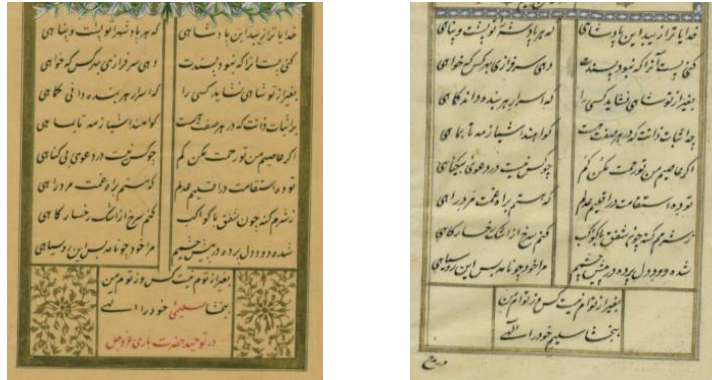 خدایا ترا زیبد این پادشاهی که هر پادشه را تو پشت و پناهی
کنی پست آنرا که نبود پسندت دهی سرفرازی بهر کس که خواهی
بغیر از تو شاهی نشاید کسی را که اسرار هر بنده دانی کماهی
بر اثبات ذاتت که در هر صفت هست گواهند اشیا ز مه تا بماهی
اگر عاصیم من تو رحمت مکن کم چو کس نیست در دعوی بی کناهی
تو ده استقامت در اقلیم عدلم که هستم براه غمت مرد راهی
ز شرم گنه چون شفق با کواکب کنم سرخ از اشک رخسار کاهی
شده دود دل پرده در پیش چشمم مرا خود چو نامه بس این روسیاهی
بغیر از توام نیست کس وز توام من
ببخشا سلیمی خود را الهی
در توحید حضرت باری عز و جل
خدایا ترا زیبد این پادشاهی که هر پادشه را تو پشت و پناهی
کنی پست آنرا که نبود پسندت دهی سرفرازی بهر کس که خواهی
بغیر از تو شاهی نشاید کسی را که اسرار هر بنده دانی کماهی
اثبات ذاتت که در هر صفت هست گواهند اشیا ز مه تا بماهی
اگر عاصیم من تو رحمت مکن کم چو کس نیست در دعوی بیکناهی
تو ده استقامت در اقلیم عدلم که هستم براه غمت مرد راهی
ز شرم گنه چون شفق با کواکب کنم سرخ از اشک رخسار کاهی
شده دود دل پرده در پیش چشمم مرا خود چو نامه بس این روسیاهی
بغیر از توام نیست کس وز توام من
ببخشا سلیم خود را الهی